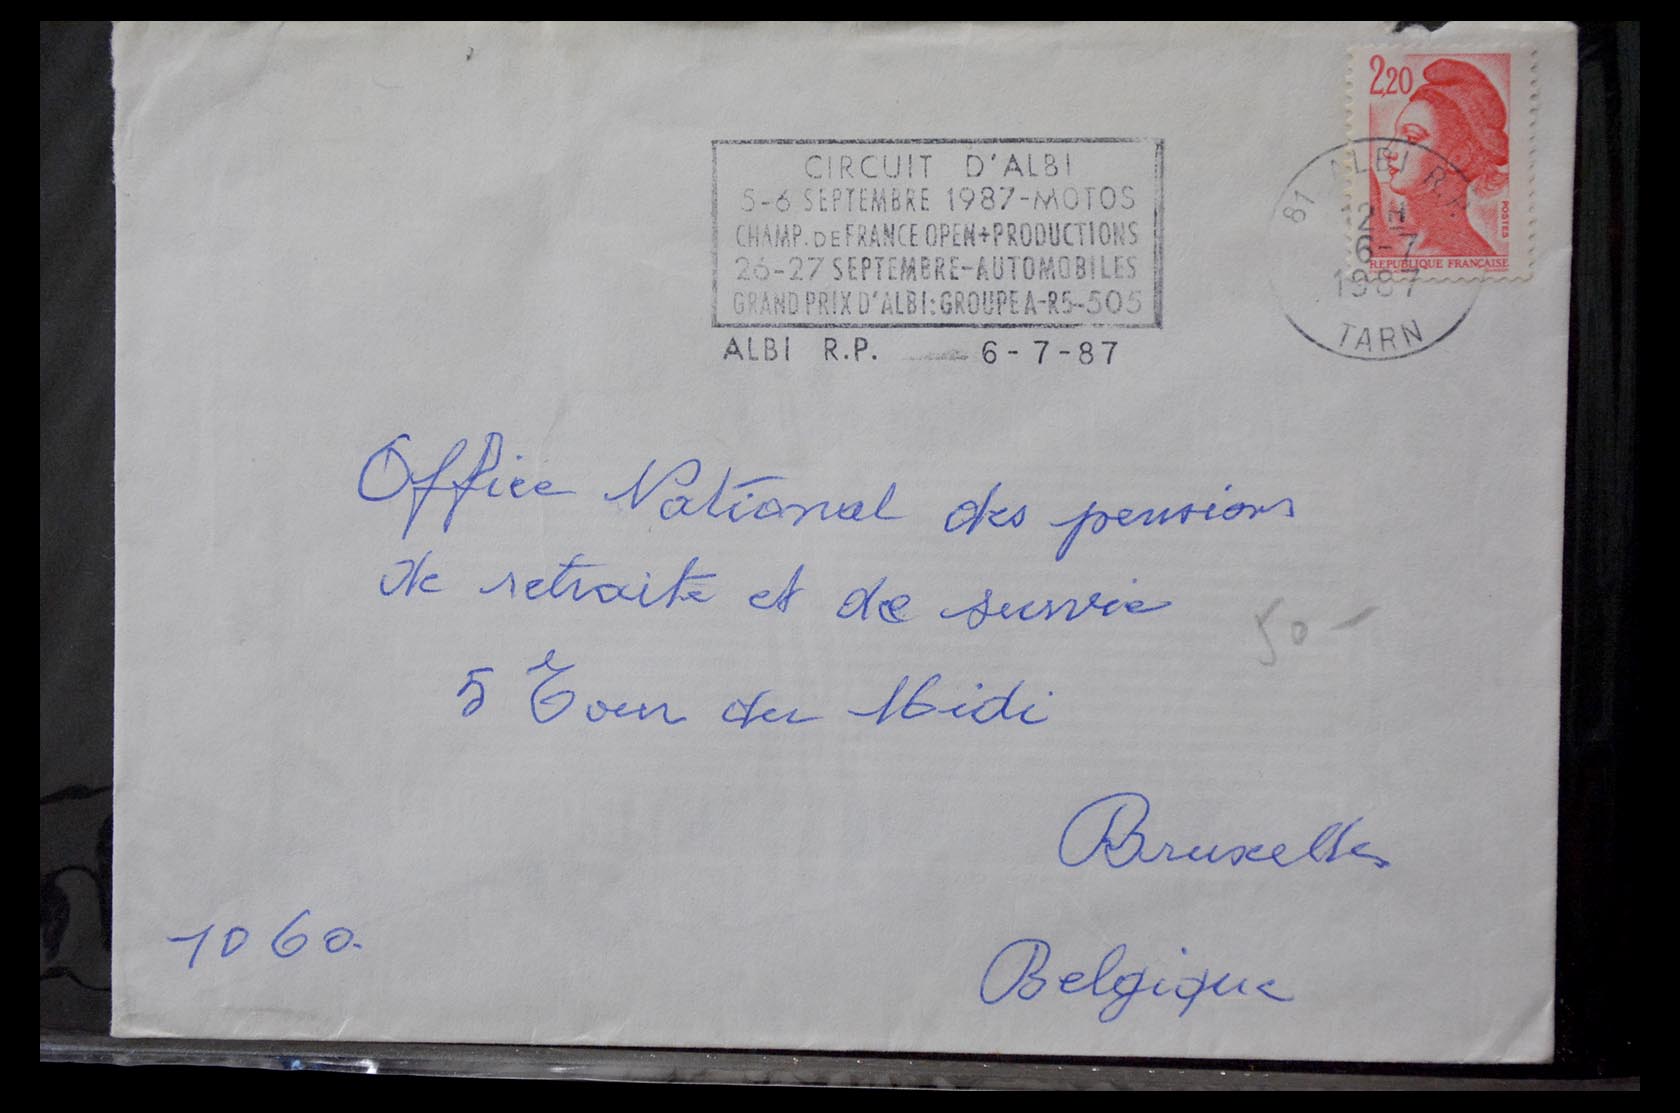 2,20
POSTES
REPUBLIQUE FRANÇAISE
81 ALBI R.P.
12 H
6-7
1987
TARN
CIRCUIT D'ALBI
5-6 SEPTEMBRE 1987-MOTOS
CHAMP. DE FRANCE OPEN+PRODUCTIONS
26-27 SEPTEMBRE-AUTOMOBILES
GRAND PRIX D'ALBI: GROUPE A-R5-505
ALBI R.P. 6-7-87
Office National des pensions
de retraite et de survie
50-
5 Tour du Midi
Bruxelles
1060.
Belgique